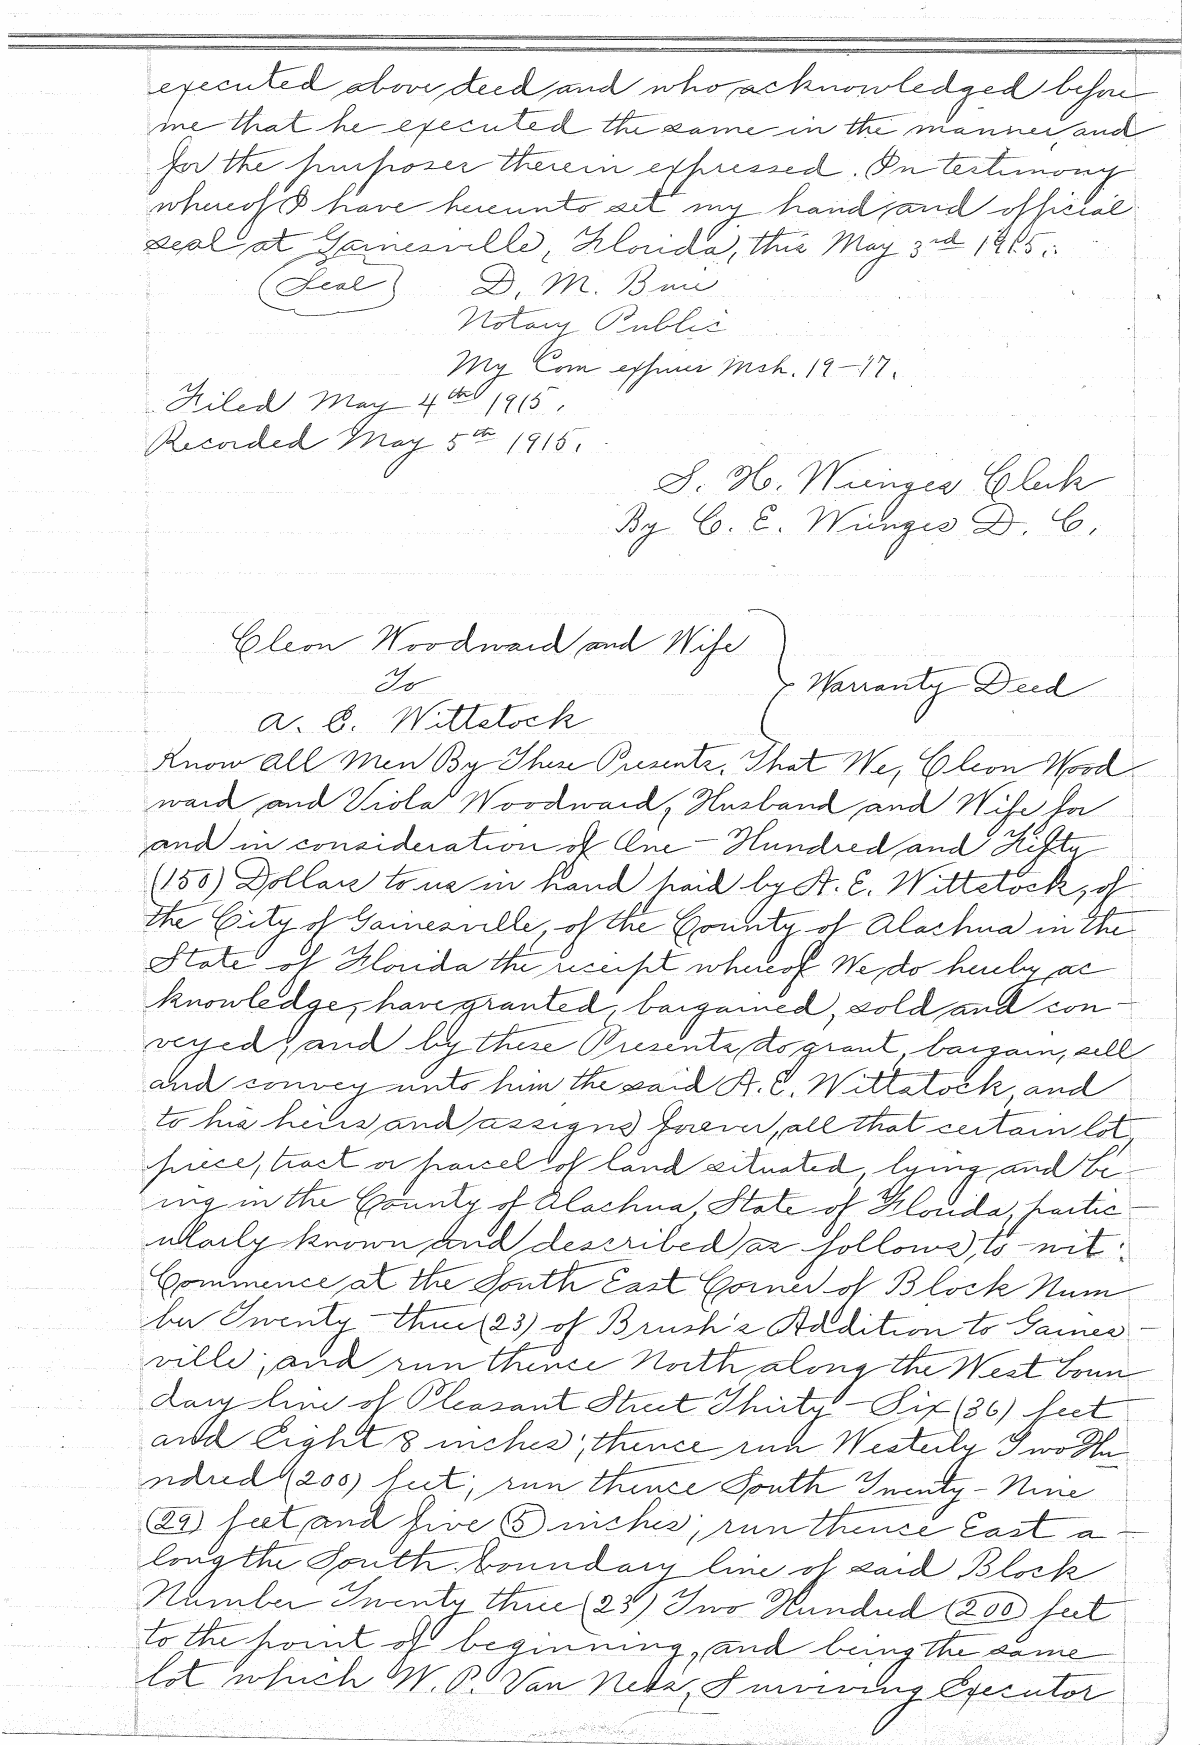 executed above deed and who acknowledged before
me that he executed the same in the manner and
for the purposes therein expressed. In testimony
whereof I have hereunto set my hand and official
seal at Gainesville, Florida, this May 3rd 1915.
(Seal) D. M. Buie
Notary Public
My Com expires Mch. 19-17.
Filed May 4th 1915.
Recorded May 5th 1915.
S. H. Wienges Clerk
By C. E. Wienges D. C.
Cleon Woodward and Wife
To
Warranty Deed
A. E. Wittstock
Know All Men By These Presents, That We, Cleon Wood
ward and Viola Woodward, Husband and Wife for
and in consideration of One-Hundred and Fifty
(150) Dollars to us in hand paid by A. E. Wittstock, of
the City of Gainesville, of the County of Alachua in the
State of Florida the receipt whereof We do hereby ac
knowledge, have granted, bargained, sold and con-
veyed, and by these Presents do grant, bargain, sell
and convey unto him the said A. E. Wittstock, and
to his heirs and assigns forever, all that certain lot,
piece, tract or parcel of land situated, lying and be-
ing in the County of Alachua, State of Florida, partic-
ularly known and described as follows, to-wit:
Commence at the South East Corner of Block Num
ber Twenty-three (23) of Brush's Addition to Gaines-
ville; and run thence North along the West boun
dary line of Pleasant Street Thirty-Six (36) feet
and Eight 8 inches; thence run Westerly Two Hu
ndred (200) feet; run thence South Twenty-Nine
(29) feet and five (5) inches; run thence East a-
long the South boundary line of said Block
Number Twenty three (23) Two Hundred (200) feet
to the point of beginning, and being the same
lot which W. P. Van Ness, Surviving Executor